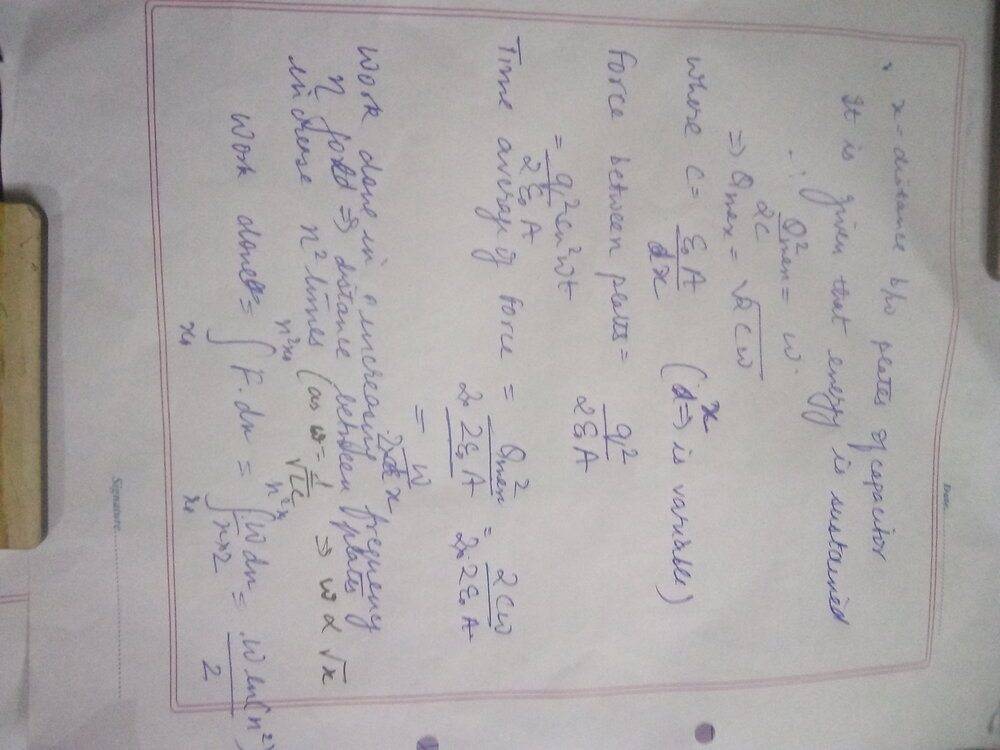 Date:
x - distance b/w plates of capacitor
It is given that energy is sustained
∴ Q²max/2C = W.
⇒ Qmax = √2CW
where C = ε₀A/x (x ⇒ is variable)
Force between plates = q²/2ε₀A
= q²cos²ωt/2ε₀A
Time average of force = Q²max/2×2ε₀A = 2CW/2×2ε₀A
= W/2x
Work done in increasing frequency
n fold ⇒ distance between plates
increase n² times (as ω = 1/√LC ⇒ ω ∝ √x
Work done = ∫x₀^n²x₀ F.dx = ∫x₀^n²x₀ W dx/x×2 = W ln(n²)/2
Signature: